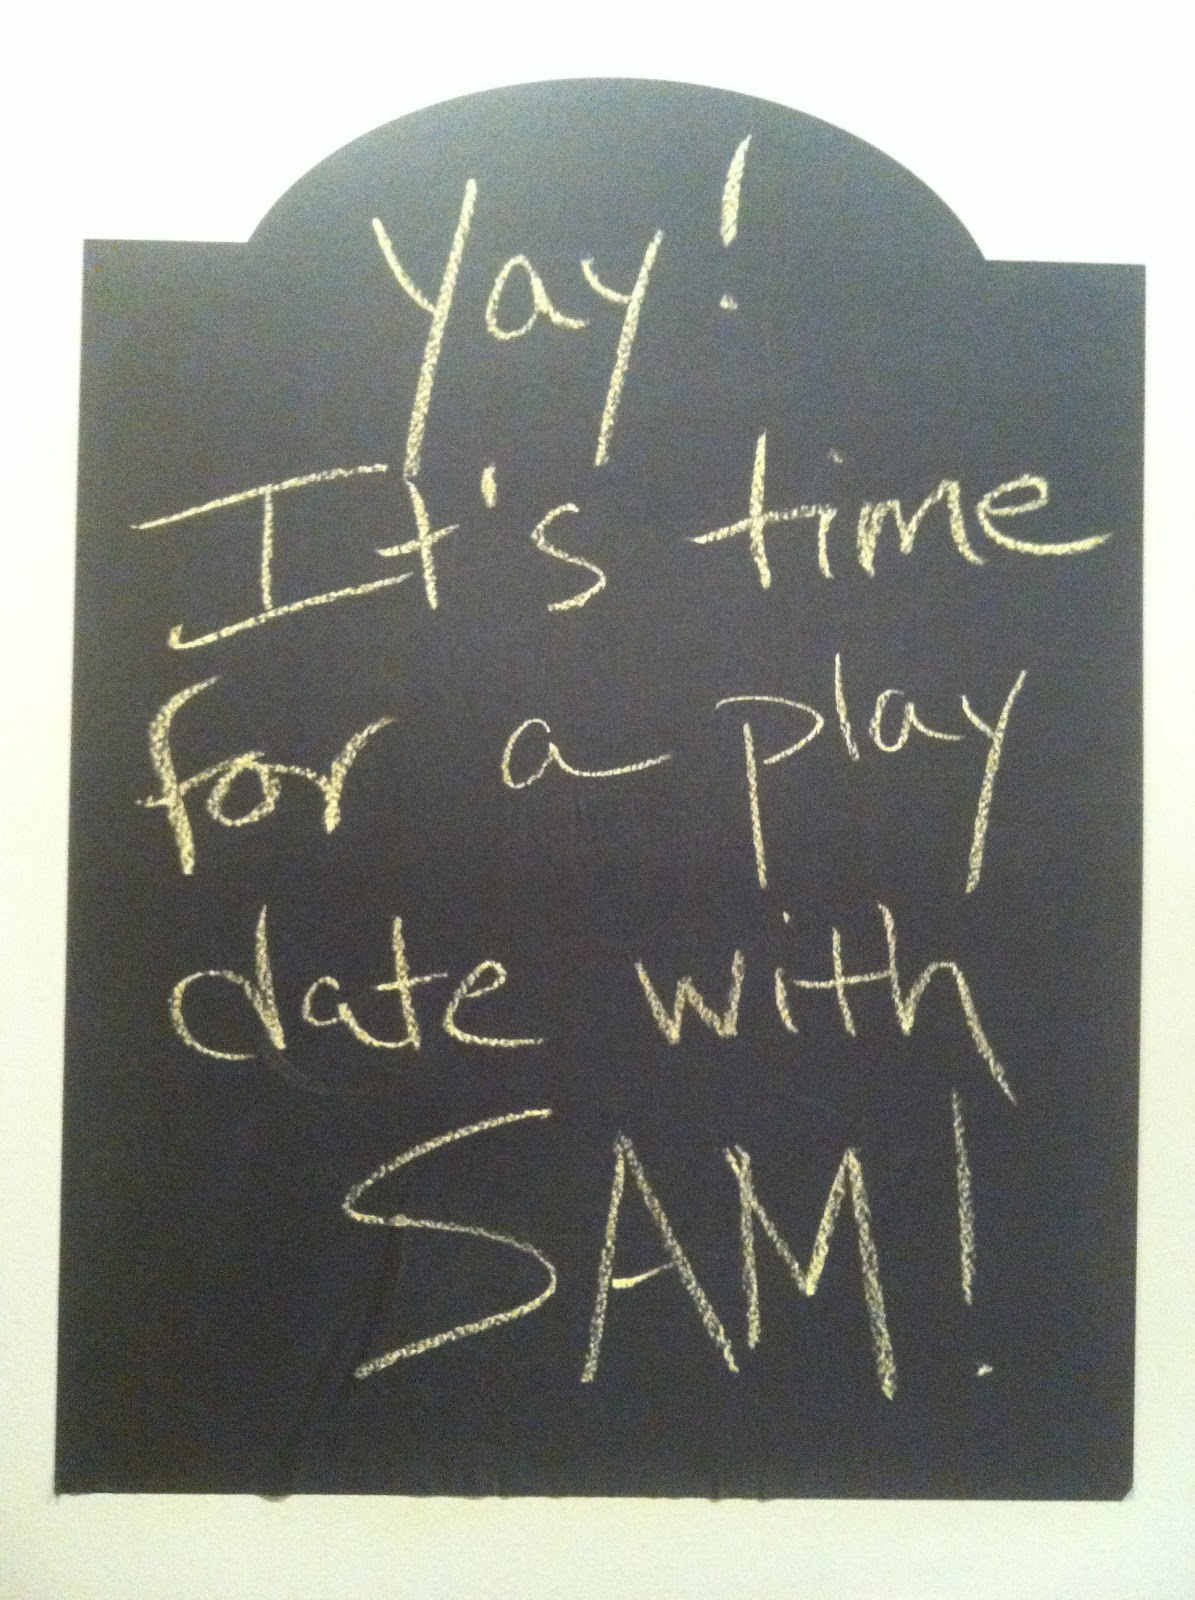 Yay!
It's time
for a play
date with
SAM!